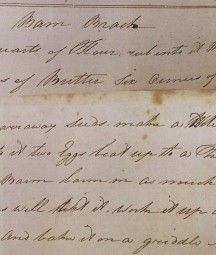 Barm Brack
quarts of Flour, rub into it
of Butter Six Ounces of
arraway seeds. make a
it two Eggs beat up to a
Barm have in as much
as will wet it. work it up
and bake it on a griddle